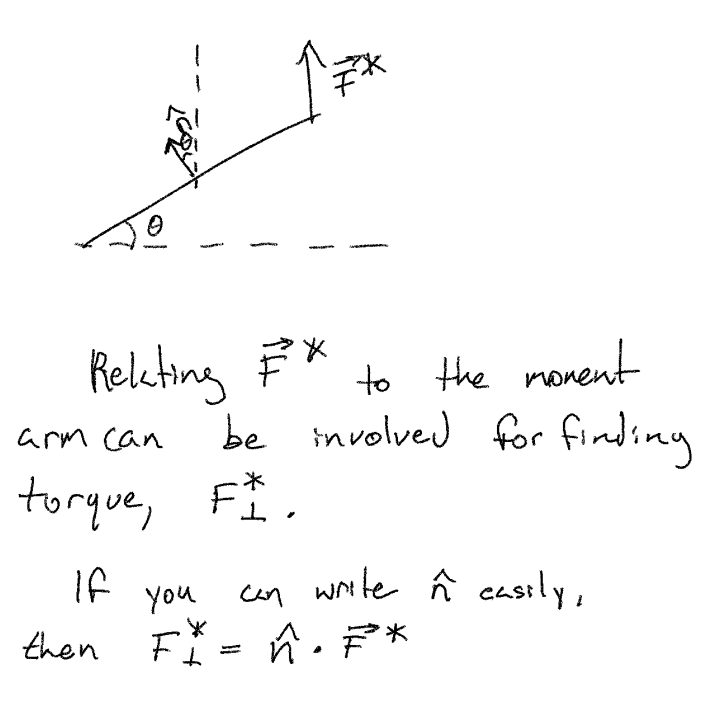 F⃗*
θ
Relating F⃗* to the moment
arm can be involved for finding
torque, F⊥*.
If you can write n̂ easily,
then F⊥* = n̂ · F⃗*